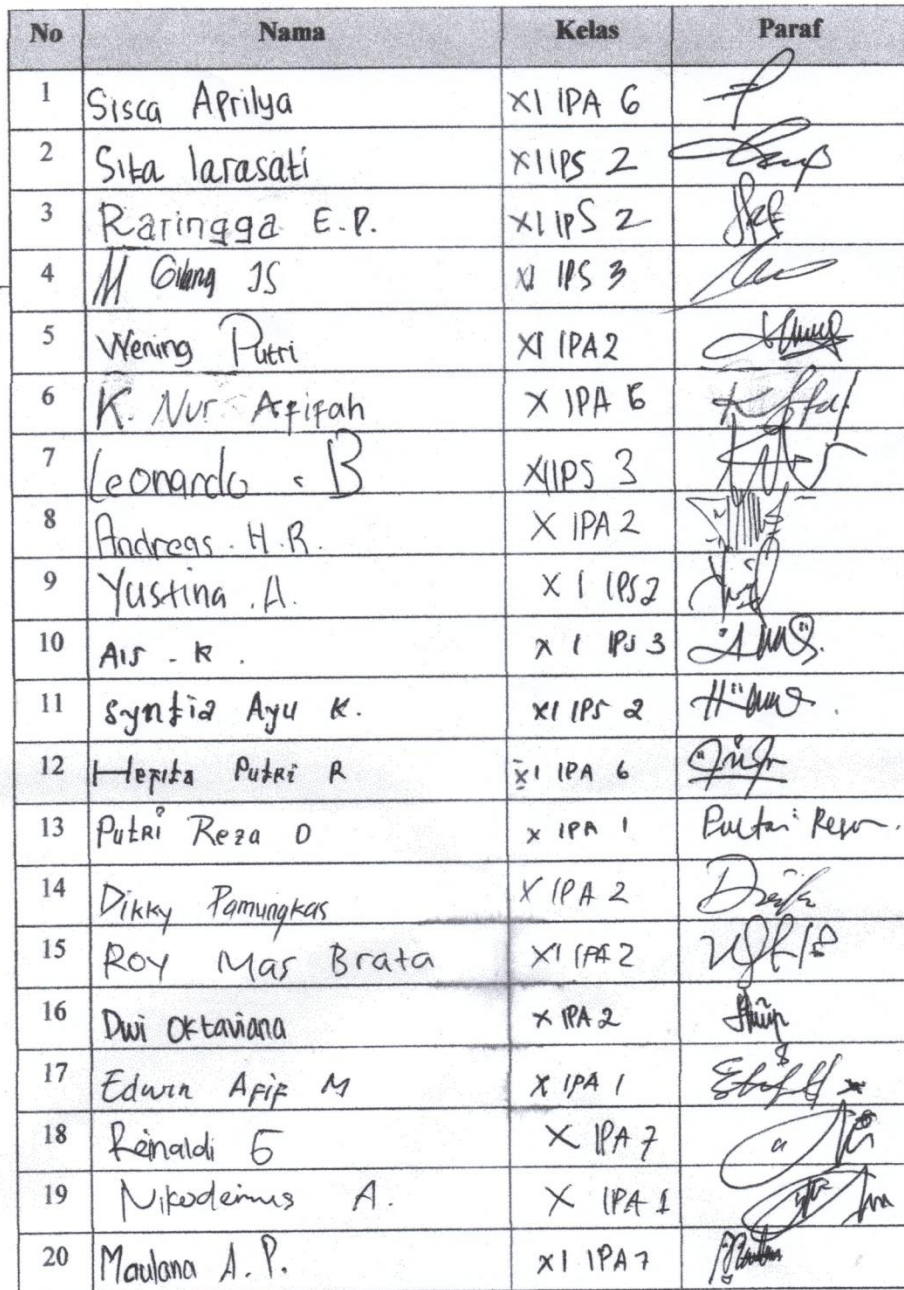 No Nama Kelas Paraf
1 Sisca Aprilya XI IPA 6
2 Sita larasati XI IPS 2
3 Raringga E.P. XI IPS 2
4 M Gilang JS XI IPS 3
5 Wening Putri XI IPA 2
6 K. Nur Afifah X IPA 6
7 Leonardo . B XI IPS 3
8 Andreas . H.R. X IPA 2
9 Yustina .A. XI IPS 2
10 AIS - K . XI IPS 3
11 Syntia Ayu K. XI IPS 2
12 Putri R XI IPA 6
13 Putri Reza D X IPA 1
14 Dikky Pamungkas X IPA 2
15 Roy Mas Brata XI IPA 2
16 Dwi Oktaviana X IPA 2
17 Edwin Afif M X IPA 1
18 Reinaldi G X IPA 7
19 Nikodemus A. X IPA 1
20 Maulana A.P. XI IPA 7